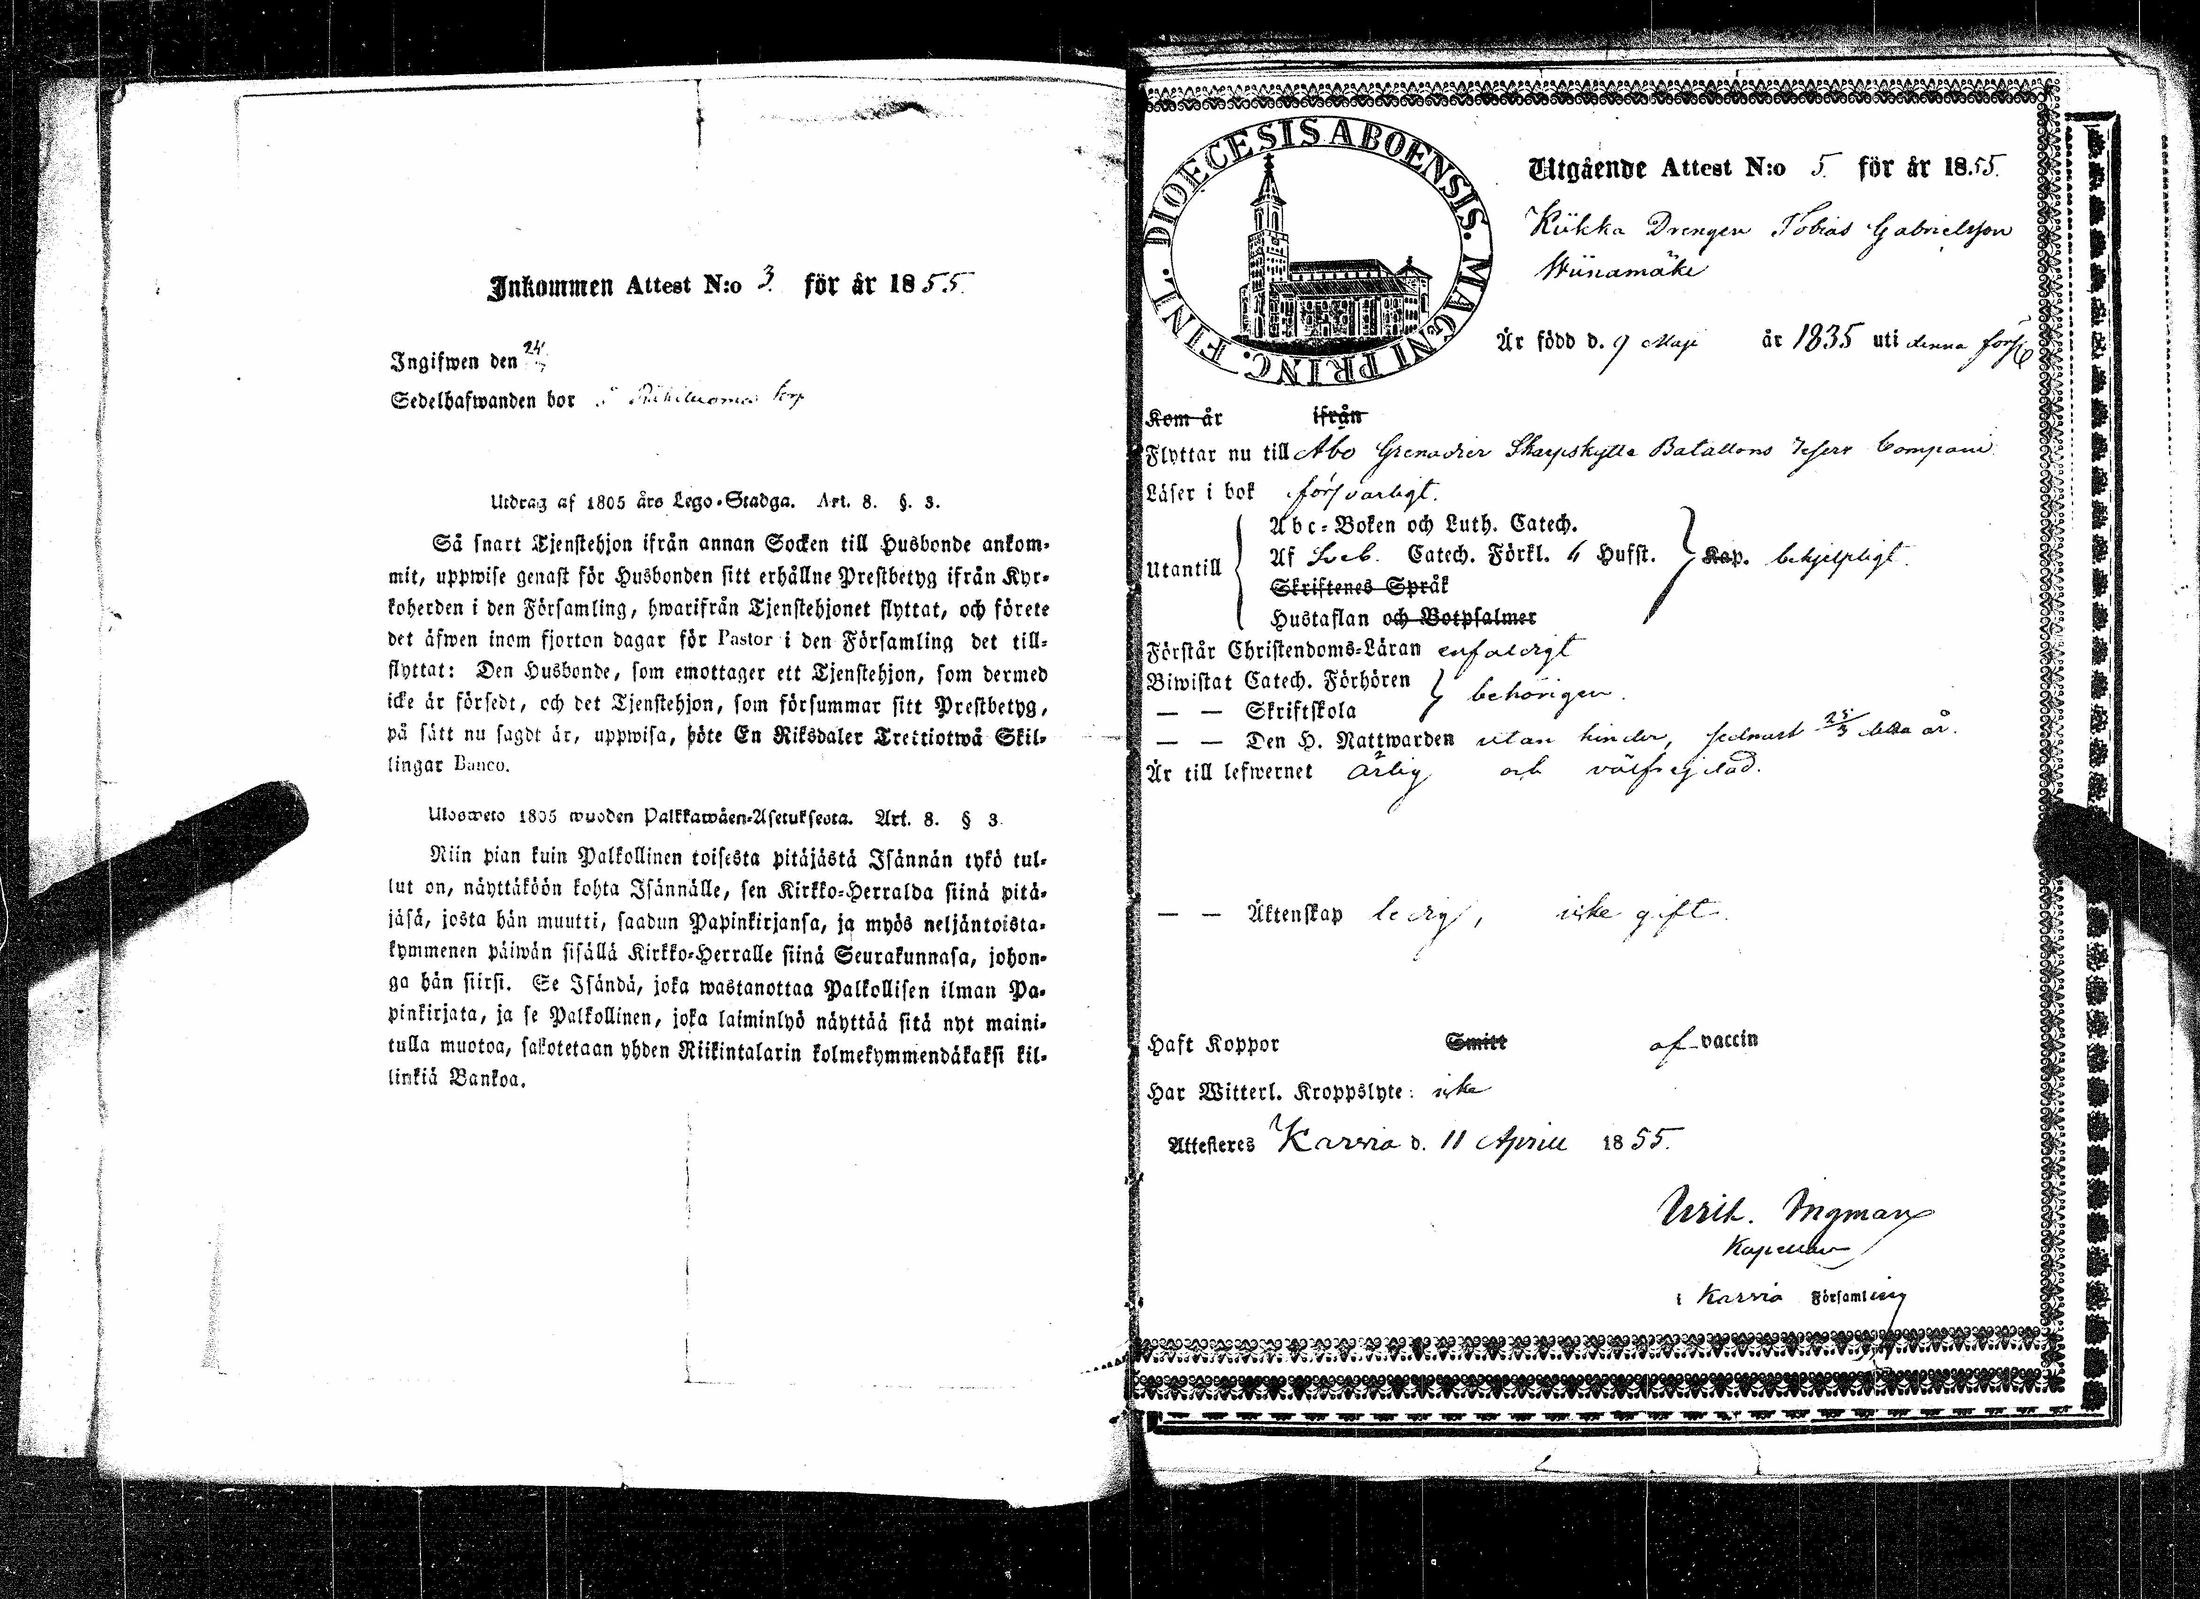 Inkommen Attest N:o 3. för år 1855.
Ingifwen den 24
Sedelhafwanden bor
Utdrag af 1805 års Lego-Stadga. Art. 8. §. 3.
Så snart Tjenstehjon ifrån annan Socken till Husbonde ankom-
mit, uppwise genast för Husbonden sitt erhållne Prestbetyg ifrån Kyr-
koherden i den Församling, hwarifrån Tjenstehjonet flyttat, och förete
det äfwen inom fjorton dagar för Pastor i den Församling det till-
flyttat: Den Husbonde, som emottager ett Tjenstehjon, som dermed
icke är försedt, och det Tjenstehjon, som försummar sitt Prestbetyg,
på sätt nu sagdt är, uppwisa, böte En Riksdaler Trettiotwå Skil-
lingar Banco.
Ulosweto 1805 wuoden Palkkawäen-Asetuksesta. Art. 8. § 3.
Niin pian kuin Palkollinen toisesta pitäjästä Isännän tykö tul-
lut on, näyttäköön kohta Isännälle, sen Kirkko-Herralda siinä pitä-
jäsä, josta hän muutti, saadun Papinkirjansa, ja myös neljäntoista-
kymmenen päiwän sisällä Kirkko-Herralle siinä Seurakunnasa, johon-
ga hän siirsi. Se Isändä, joka wastanottaa Palkollisen ilman Pa-
pinkirjata, ja se Palkollinen, joka laiminlyö näyttää sitä nyt maini-
tulla muotoa, sakotetaan yhden Riikintalarin kolmekymmendäkaksi kil-
linkiä Bankoa.
FINL. DIOECESIS ABOENSIS. MAGNI PRINC.
Utgående Attest N:o 5. för år 1855.
Kiikka Drengen Tobias Gabrielsson
Wiinamäki
Är född d. 9 Maji år 1835 uti denna förs
Kom år ifrån
Flyttar nu till Åbo Grenadier Skarpskytte Bataillons Reserv Compani
Läser i bok försvarligt.
Utantill
Abc-Boken och Luth. Catech.
Af Sveb. Catech. Förkl. 6 Hufst. Kap. behjelpligt.
Skriftenes Språk
Hustaflan och Botpsalmer
Förstår Christendoms-Läran enfaldigt
Biwistat Catech. Förhören
— — Skriftskola behörigen.
— — Den H. Nattwarden utan hinder, sednast 25/3 detta år.
Är till lefwernet ärlig och välfrejdad.
— — Äktenskap ledig, icke gift.
Haft Koppor Smitt af vaccin
Har Witterl. Kroppslyte: icke
Attesteres Karvia d. 11 Aprill 1855.
Ingman
Kapellan
i Karvia Församling